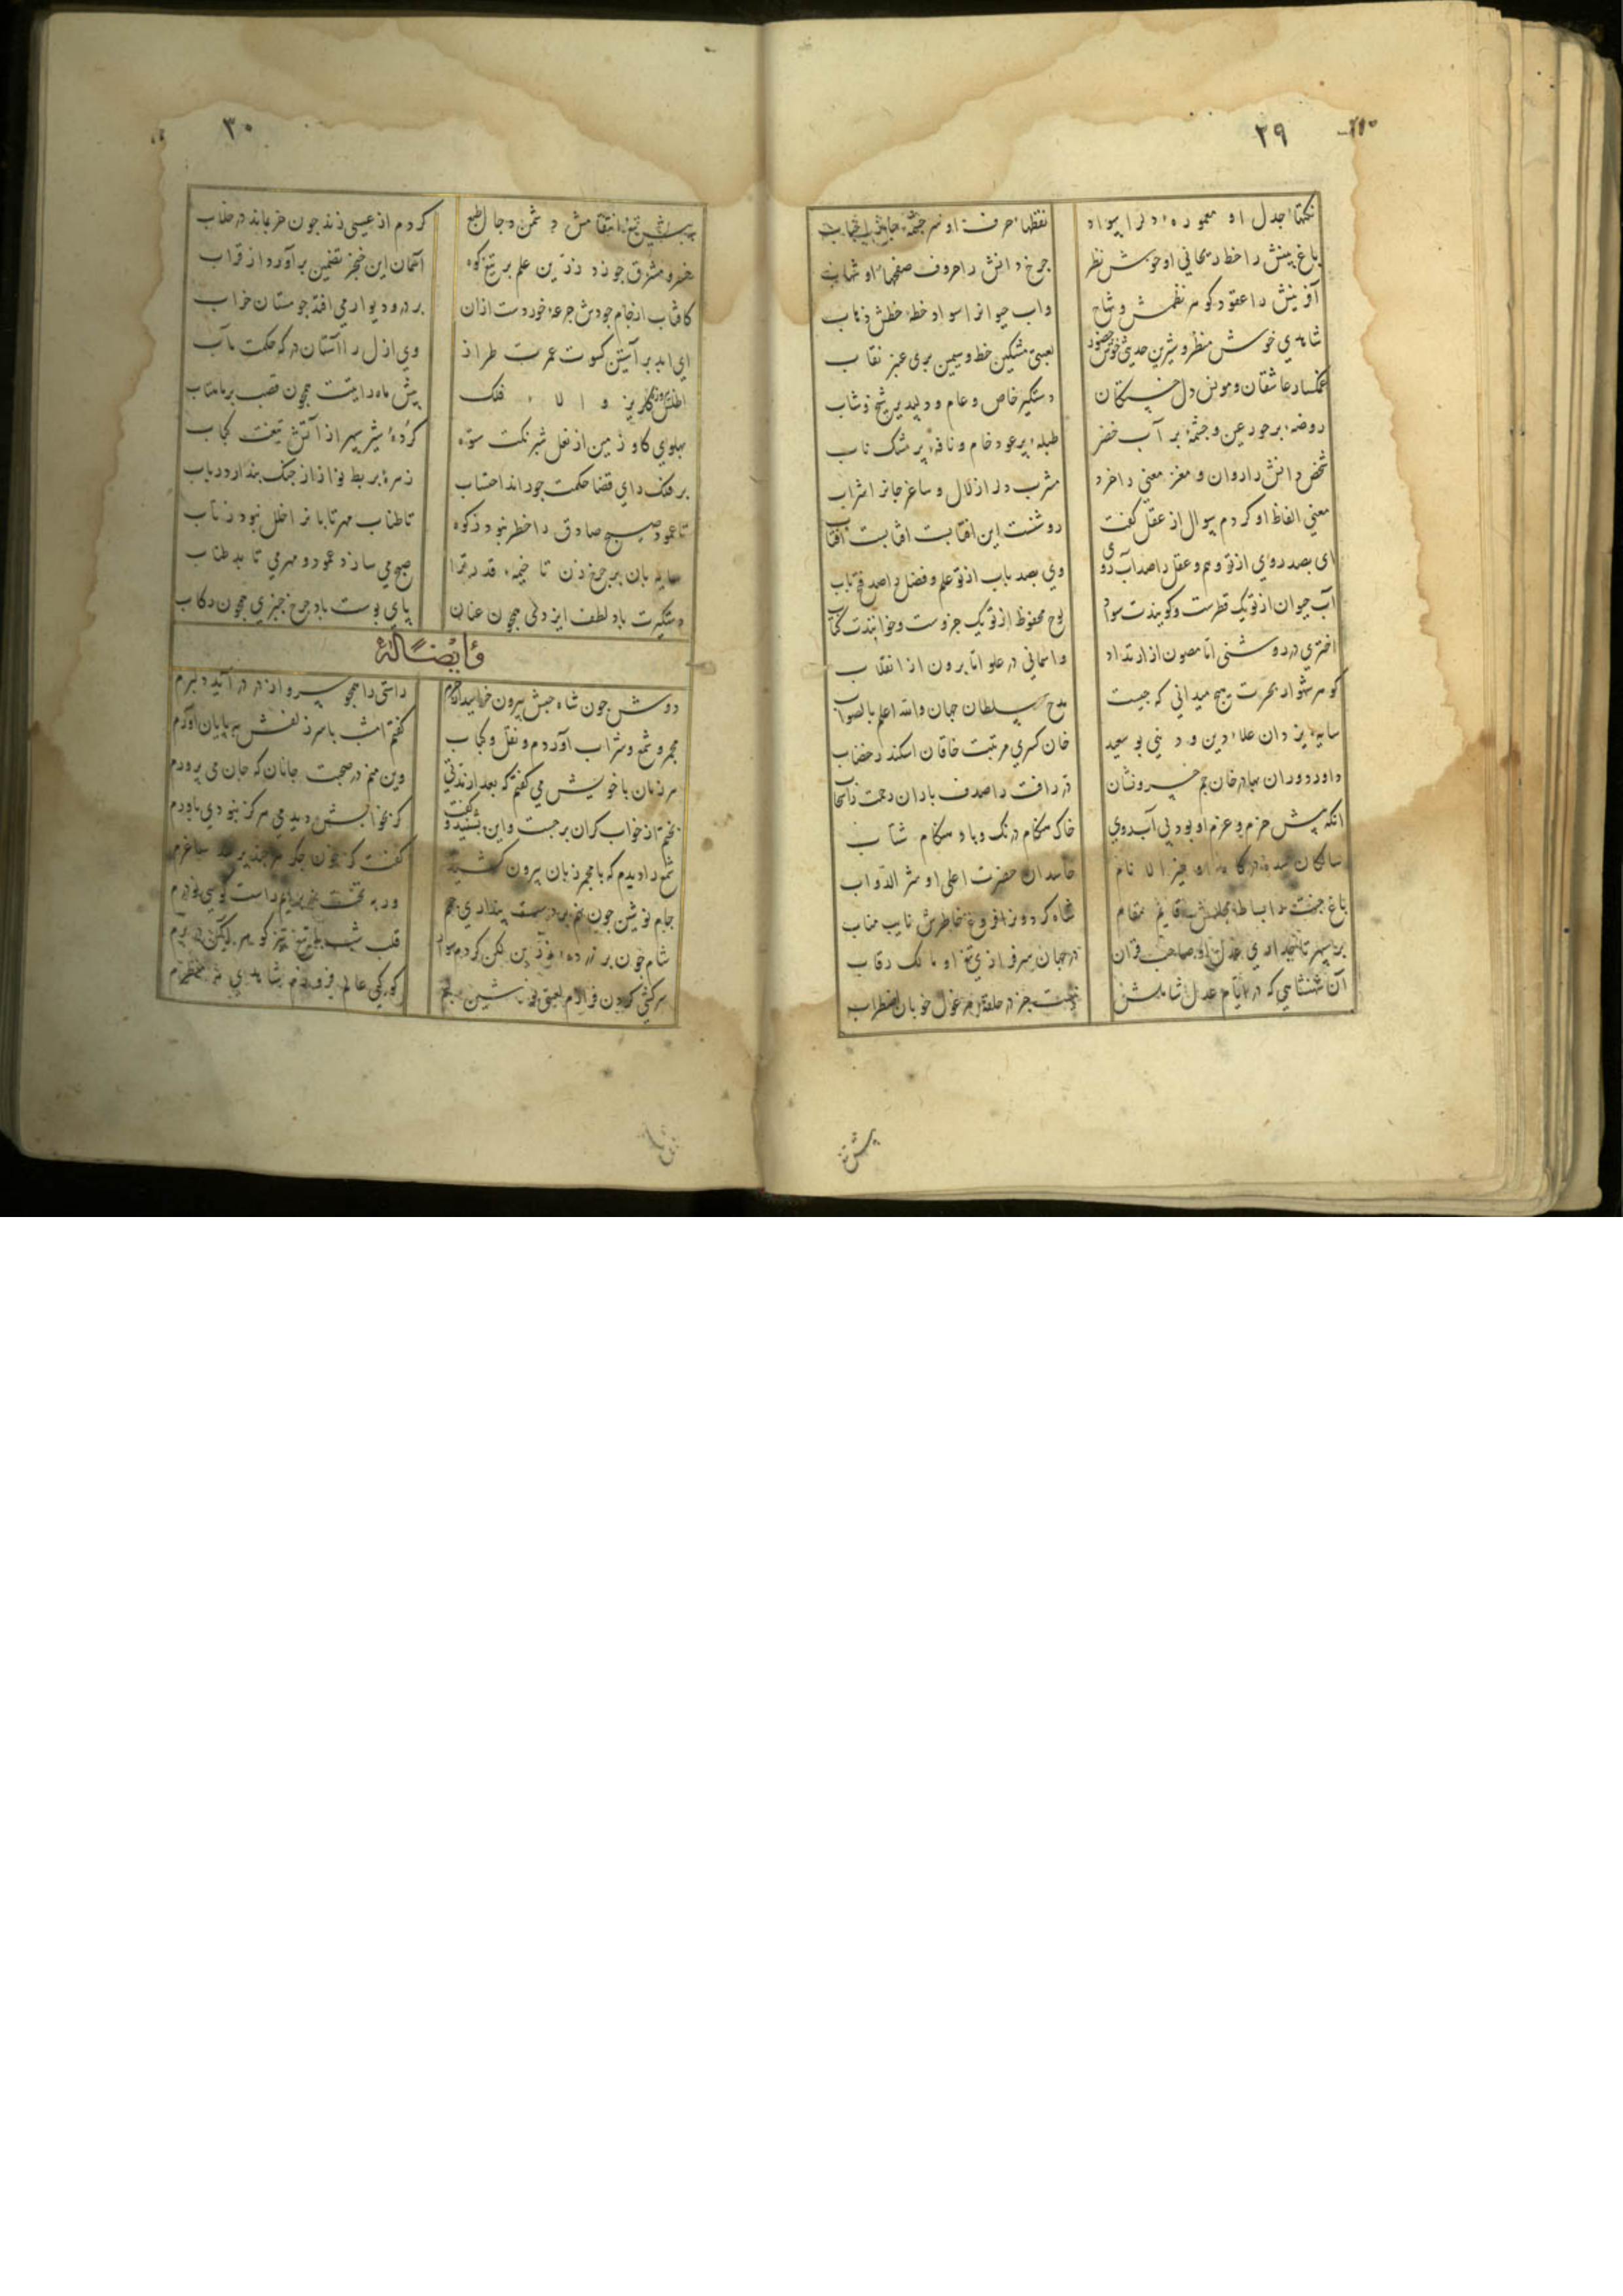 ۲۹
نکتهاء جدل او معمورهٔ دلرا سواد
نقطهاء حرف او سرچشمهٔ
باغ بینش را خط ریحانی او خوش نظر
چرخ دانش را حروف صفحهاء او شهاب
آفرینش را عقود کوهر نظمش وشاح
واب حیوانرا سواد خطهٔ خطش ذهاب
شاهدی خوش منظر و شیرین حدیثی خوش حضور
لعبتی مشکین خط و سیمین بری عنبر نقاب
غمکسار عاشقان و مونس دل خستکان
دستکیر خاص و عام و دلپذیر شیخ و شاب
روضهٔ پر حور عین و چشمهٔ پر آب خضر
طبلهٔ پر عود خام و نافهٔ پر مشک ناب
شخص دانش را روان و مغز معنی را خرد
مشرب دل را زلال و ساغر جانرا شراب
معنی الفاظ او کردم سوال از عقل کفت
روشنست این افتابست افتابست افتاب
ای بصد روی از تو وهم و عقل را صد آب روی
وی بصد باب از تو علم و فضل را صد فتح باب
آب حیوان از تو یک قطرست و کویندت سواد
لوح محفوظ از تو یک جزوست و خوانندت کتاب
اختری در روشنی اما مصون از ارتداد
واسمانی در علو اما برون از انقلاب
کوهر شهوار بحرت هیچ میدانی که چیست
مدح سلطان جهان والله اعلم بالصواب
سایهٔ یزدان علاء دین و دنیی بو سعید
خان کسری مرتبت خاقان اسکندر جناب
داور دوران بهادر خان جم خسرونشان
در رافت را صدف باران رحمت را سحاب
انکه پیش حزم و عزم او بود بی آب روی
خاک هنکام درنک و باد هنکام شتاب
حاسدان حضرت اعلی او شر الدواب
باغ جنت با بساط مجلسش قایم مقام
شاه کردونرا فروغ خاطرش نایب مناب
بر سپهر تاجداری عدل او صاحب قران
در جهان سرفرازی تیغ او مالک رقاب
آن شهنشاهی که در ایام عدل شاملش
نیست جز در حلقهٔ مرغول خوبان اضطراب
پیش تیغ
۳۰
پیش تیغ انتقامش دشمن دجال طبع
کر دم از عیسی زند چون خر بماند در خلاب
خسرو مشرق چو زد زرین علم بر تیغ کوه
آسمان این خنجر تضمین برآورد از قراب
کافتاب از جام جودش جرعهٔ خوردست ازان
بر در و دیوار می افتد چو مستان خراب
ای ابد بر آستین کسوت عمرت طراز
وی ازل را آستان درکه حکمت مآب
اطلس زرکار و الاء فلک
پیش ماه رایتت همچون قصب بر ماهتاب
پهلوی کاو زمین از نعل شبرنکت ستوه
کردهٔ شیر سپهر از آتش تیغت کباب
بر فلک رای قضا حکمت چو راند احتساب
زهرهٔ بربط نواز از چنک بندازد رباب
تا عمود صبح صادق را خطر نبود ز کوه
تا طناب مهر تابانرا خلل نبود ز تاب
سایه بان بر چرخ زن تا خیمهٔ قدر ترا
صبح می سازد عمود و مهر می تابد طناب
دستکیرت باد لطف ایزدی همچون عنان
پای بوست باد چرخ چنبری همچون رکاب
وایضًا لَهُ
دوش چون شاه حبش بیرون خرامید از حرم
راستی را همچو سرو از در در آمد دلبرم
مجمر و شمع و شراب آوردم و نقل و کباب
کفتم امشب با سر زلفش بپایان آورم
هر زمان با خویش می کفتم که بعد از مدتی
وین منم در صحبت جانان که جان می پرورم
بختم از خواب کران برجست و این بشنید و کفت
کر بخوابش دیدمی هرکز نبودی باورم
شمع را دیدم که با مجمر زبان بیرون کشید
کفت کر خون جکر
جام نوشین چون
شام چون بر
قلب شب